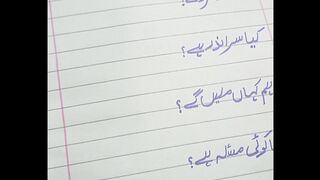 کیا سرانڈر ہے؟
ہم کہاں ملیں گے؟
کوئی مسئلہ ہے؟